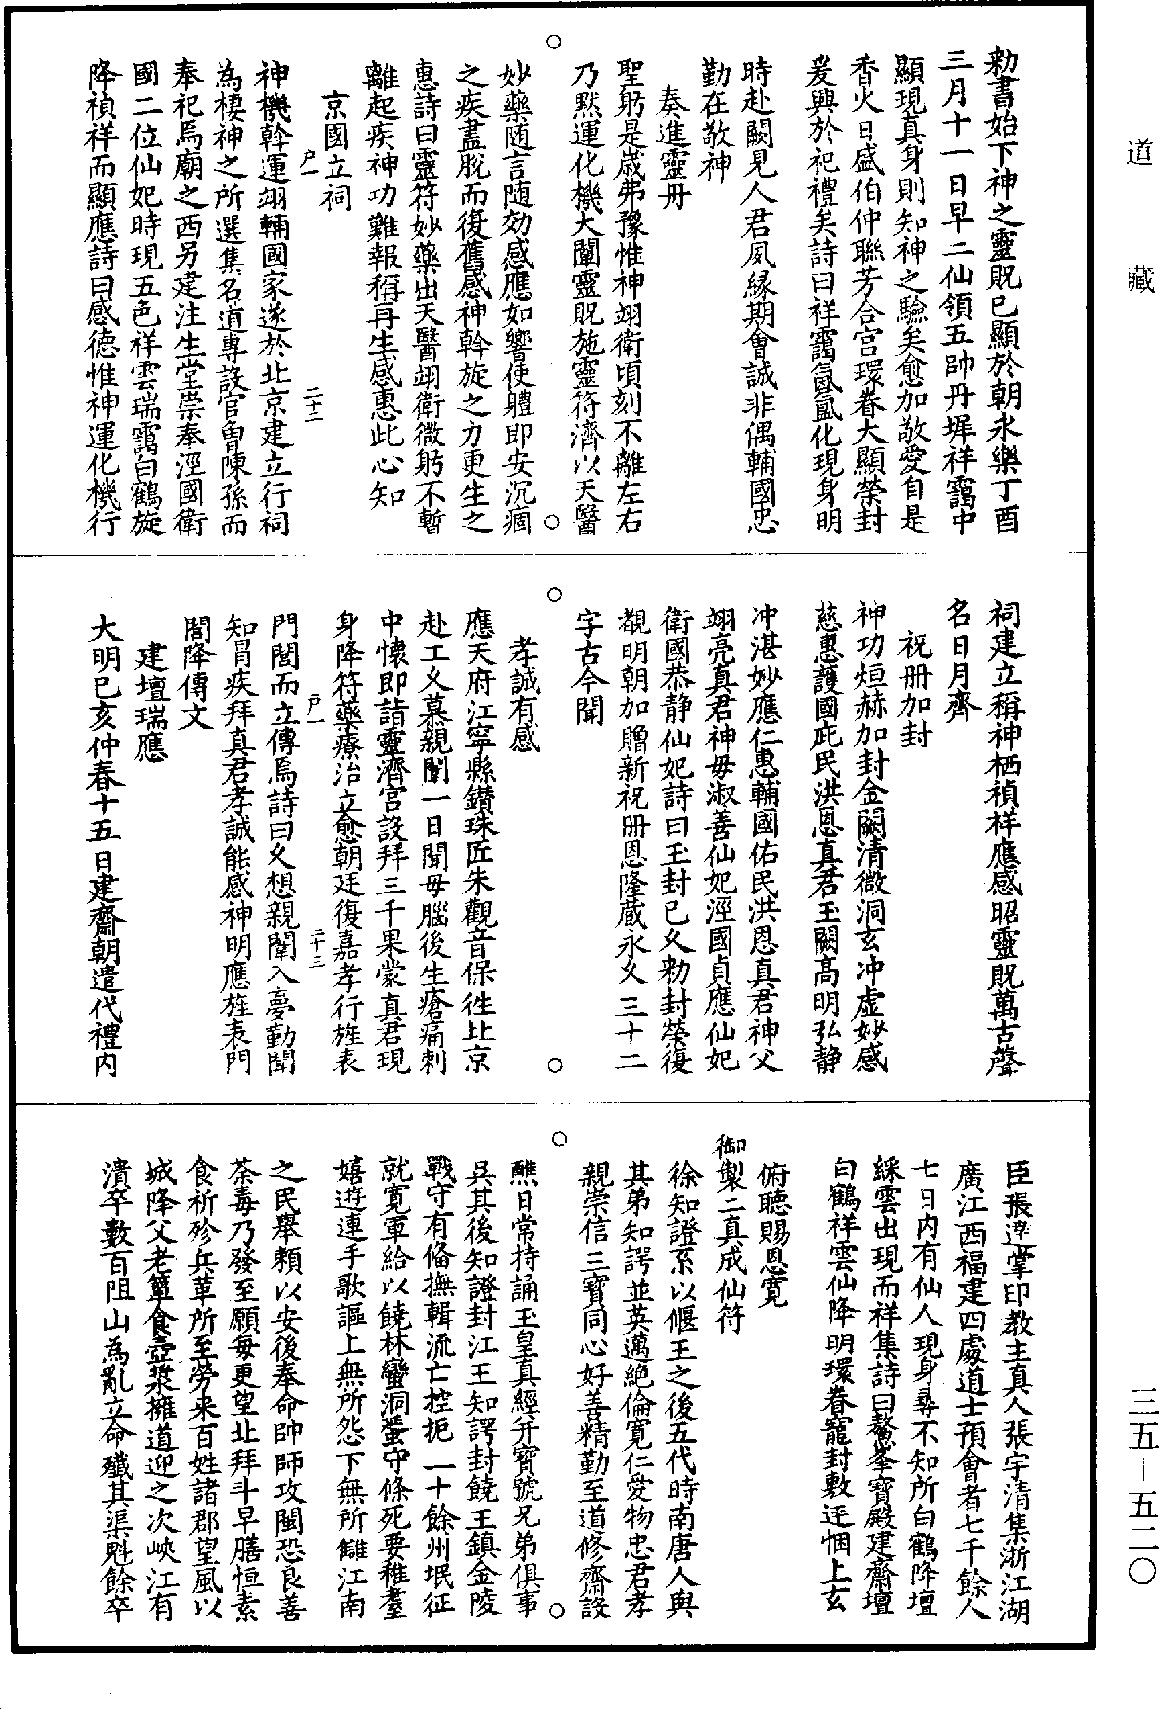 道藏
勅書始下神之靈貺已顯於朝永樂丁酉
三月十一日早二仙領五帥丹墀祥靄中
顯現真身則知神之驗矣愈加敬愛自是
香火日盛伯仲聯芳合宫環眷大顯榮封
爰興於祀禮矣詩曰祥靄氤氲化現身明
時赴闕見人君夙緣期會誠非偶輔國忠
勤在敬神
奏進靈丹
聖躬是歲弗豫惟神翊衛頃刻不離左右
乃默運化機大闡靈貺施靈符濟以天醫
妙藥随言随効感應如響使體即安沉痼
之疾盡脫而復舊感神斡旋之力更生之
惠詩曰靈符妙藥出天醫翊衛微躬不暫
離起疾神功難報稱再生感惠此心知
京國立祠
户一
二十二
神機斡運翊輔國家遂於北京建立行祠
為棲神之所選集名道專設官曾陳孫而
奉祀焉廟之西另建注生堂崇奉涇國衛
國二位仙妃時現五色祥雲瑞靄白鶴旋
降禎祥而顯應詩曰感德惟神運化機行
祠建立稱神栖禎祥應感昭靈貺萬古聲
名日月齊
祝册加封
神功烜赫加封金闕清微洞玄冲虚妙感
慈惠護國庇民洪恩真君玉闕高明弘静
冲湛妙應仁惠輔國佑民洪恩真君神父
翊亮真君神母淑善仙妃涇國貞應仙妃
衛國恭静仙妃詩曰玉封已久勑封榮復
覩明朝加贈新祝册恩隆葳永久三十二
字古今聞
孝誠有感
應天府江寧縣鑽珠匠朱觀音保徃北京
赴工久慕親闈一日聞母腦後生瘡痛刺
中懷即詣靈濟宫設拜三千果蒙真君現
身降符藥療治立愈朝廷復嘉孝行旌表
户一
二十三
門閭而立傳焉詩曰久想親闈入夢勤聞
知冒疾拜真君孝誠能感神明應旌表門
閭降傳文
建壇瑞應
大明已亥仲春十五日建齋朝遣代禮内
臣張達掌印教主真人張宇清集浙江湖
廣江西福建四處道士預會者七千餘人
七日内有仙人現身尋不知所白鶴降壇
綵雲出現而祥集詩曰鰲峯寶殿建齋壇
白鶴祥雲仙降明環眷寵封數迓悃上玄
俯聴賜恩寛
御製二真成仙符
徐知證系以偃王之後五代時南唐人與
其弟知諤並英邁絶倫寛仁愛物忠君孝
親崇信三寶同心好善精勤至道修齋設
醮日常持誦玉皇真經并寳號兄弟俱事
呉其後知證封江王知諤封饒王鎮金陵
戰守有俻撫輯流亡控扼一十餘州垊征
就寛軍給以饒林蠻洞蜑守條死要稚耋
嬉遊連手歌謳上無所怨下無所讎江南
之民舉頼以安後奉命帥師攻閩恐良善
荼毒乃發至願每更望北拜斗早膳恒素
食祈殄兵革所至勞来百姓諸郡望風以
城降父老簞食壺漿擁道迎之次峽江有
潰卒數百阻山為亂立命殲其渠魁餘卒
三五－五二〇